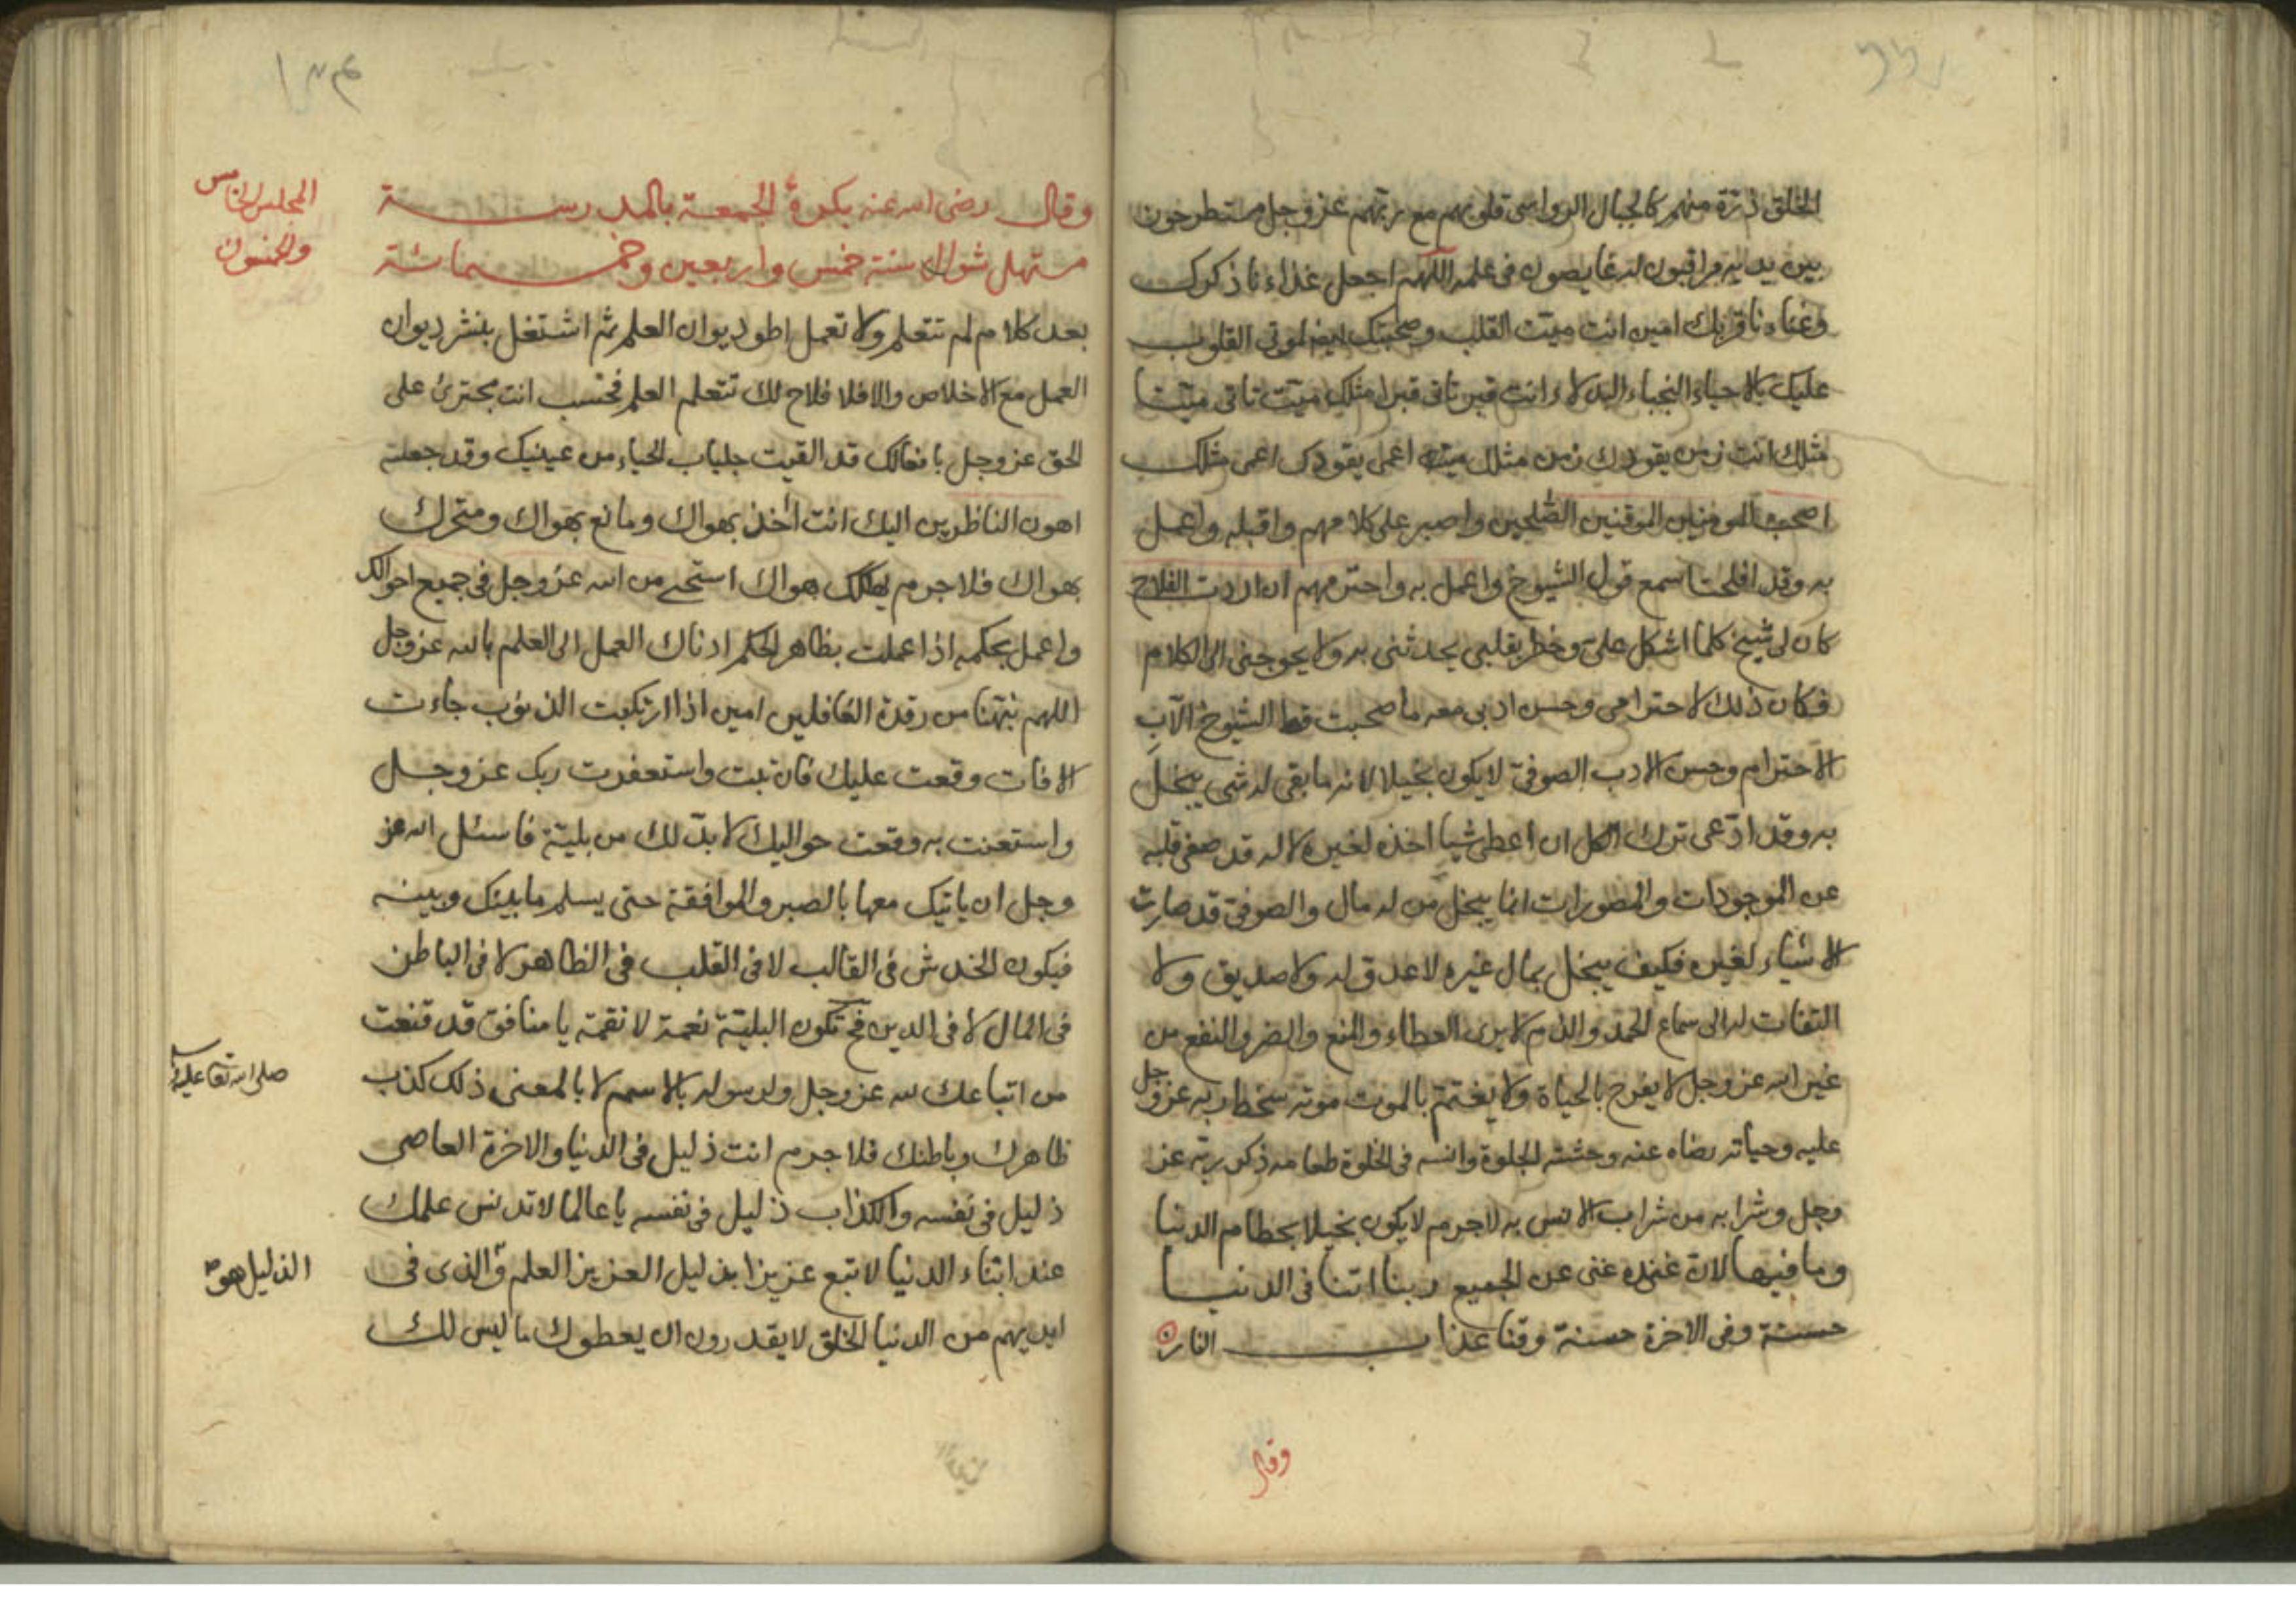 الخلق ذرة منهم كالجبال الرواسى قلوبهم مع ربهم عز وجل مستطرحون
بين يديه مراقبون له غايصون فى علمه اللهم اجعل غذاءنا ذكرك
وغناءنا قربك امين انت ميت القلب وصحبتك ايضا لموتى القلوب
عليك بالاحياء النجباء البدلاء انت قبر تاتى قبرا مثلك ميت تاتى ميتا
مثلك انت زمن يقودك زمن مثلك اعمى يقودك اعمى مثلك
اصحب المومنين الموقنين الصلحين واصبر على كلامهم واقبله واعمل
به وقد افلحت اسمع قول الشيوخ واعمل به واحترمهم ان اردت الفلاح
كان لى شيخ كلما اشكل على وخطر بقلبى يحدثنى به ولا يحوجنى الى الكلام
فكان ذلك لاحترامى وحسن ادبى معه ما صحبت قط الشيوخ الا ب
الاحترام وحسن الادب الصوفى لا يكون بخيلا لانه ما بقى له شى يبخل
به وقد ادعى ترك الكل ان اعطى شيا اخذه لغيره لا له قد صفى قلبه
عن الموجودات والمصورات انما يبخل من له مال والصوفى قد صارت
الاشياء لغيره فكيف يبخل بمال غيره لا عدو له ولا صديق ولا
التفات له الى سماع الحمد والذم لا يرى العطاء والمنع والضر والنفع من
غير الله عز وجل لا يفرح بالحياة ولا يغتم بالموت موته سخط ربه عز وجل
عليه وحياته رضاه عنه وحشته الجلوة وانسه فى الخلوة طعامه ذكر ربه عز
وجل وشرابه من شراب الانس به لا جرم لا يكون بخيلا بحطام الدنيا
وما فيها لان عنده غنى عن الجميع ربنا اتنا فى الدنيا
حسنة وفى الاخرة حسنة وقنا عذاب النار
وقال
وقال رضى الله عنه بكرة الجمعة بالمدرسة
المجلس الخامس
مستهل شوال سنة خمس واربعين وخمسمائة
والخمسون
بعد كلام لم تتعلم ولا تعمل اطو ديوان العلم ثم اشتغل بنشر ديوان
العمل مع الاخلاص والا فلا فلاح لك تتعلم العلم فحسب انت مجترئ على
الحق عز وجل بافعالك قد القيت جلباب الحياء من عينيك وقد جعلته
اهون الناظرين اليك انت أخذ بهواك ومانع بهواك ومتحرك
بهواك فلا جرم يهلكك هواك استحى من الله عز وجل فى جميع احوالك
واعمل بحكمه اذا عملت بظاهر الحكم ادناك العمل الى العلم بالله عز وجل
اللهم نبهنا من رقدة الغافلين امين اذا ارتكبت الذنوب جاءت
الافات وقعت عليك فان تبت واستغفرت ربك عز وجل
واستعنت به وقعت حواليك لا بد لك من بلية فاسئل الله عز
وجل ان ياتيك معها بالصبر والموافقة حتى يسلم ما بينك وبينه
فيكون الخدش فى القالب لا فى القلب فى الظاهر لا فى الباطن
فى المال لا فى الدين فح تكون البلية نعمة لا نقمة يا منافق قد قنعت
من اتباعك لله عز وجل ولرسوله بالاسم لا بالمعنى ذلك كذب
ظاهرك وباطنك فلا جرم انت ذليل فى الدنيا والاخرة العاصى
ذليل فى نفسه والكذاب ذليل فى نفسه يا عالما لا تدنس علمك
عند ابناء الدنيا لا تبع عزيزا بذليل العزيز العلم والذى فى
الذليل هو
ايديهم من الدنيا الخلق لا يقدرون ان يعطوك ما ليس لك